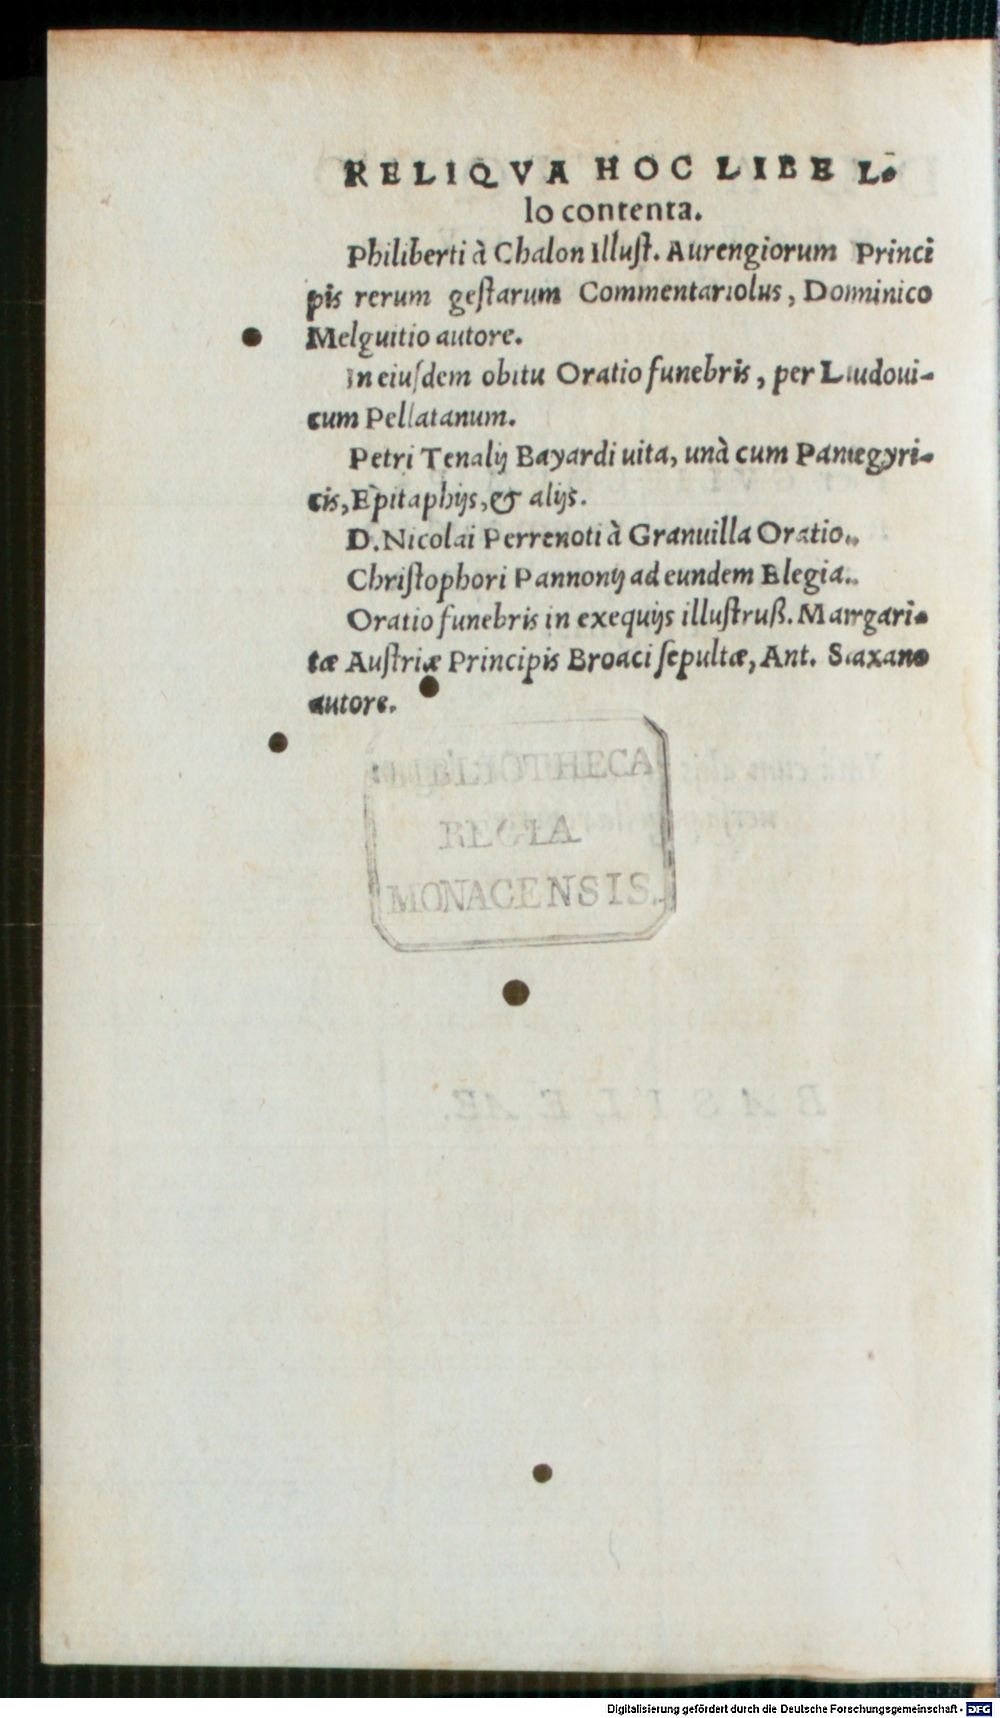 RELIQVA HOC LIBEL-
lo contenta.
Philiberti à Chalon Illust. Aurengiorum Princi
pis rerum gestarum Commentariolus, Dominico
Melguitio autore.
In eiusdem obitu Oratio funebris, per Ludoui-
cum Pellatanum.
Petri Tenalij Bayardi uita, unà cum Panegyri-
cis, Epitaphijs, & alijs.
D. Nicolai Perrenoti à Granuilla Oratio.
Christophori Pannonij ad eundem Elegia.
Oratio funebris in exequijs illustruß. Margari-
tæ Austriæ Principis Broaci sepultæ, Ant. Saxano
autore.
BIBLIOTHECA
REGIA
MONACENSIS.
BASILEAE.
Digitalisierung gefördert durch die Deutsche Forschungsgemeinschaft - DFG